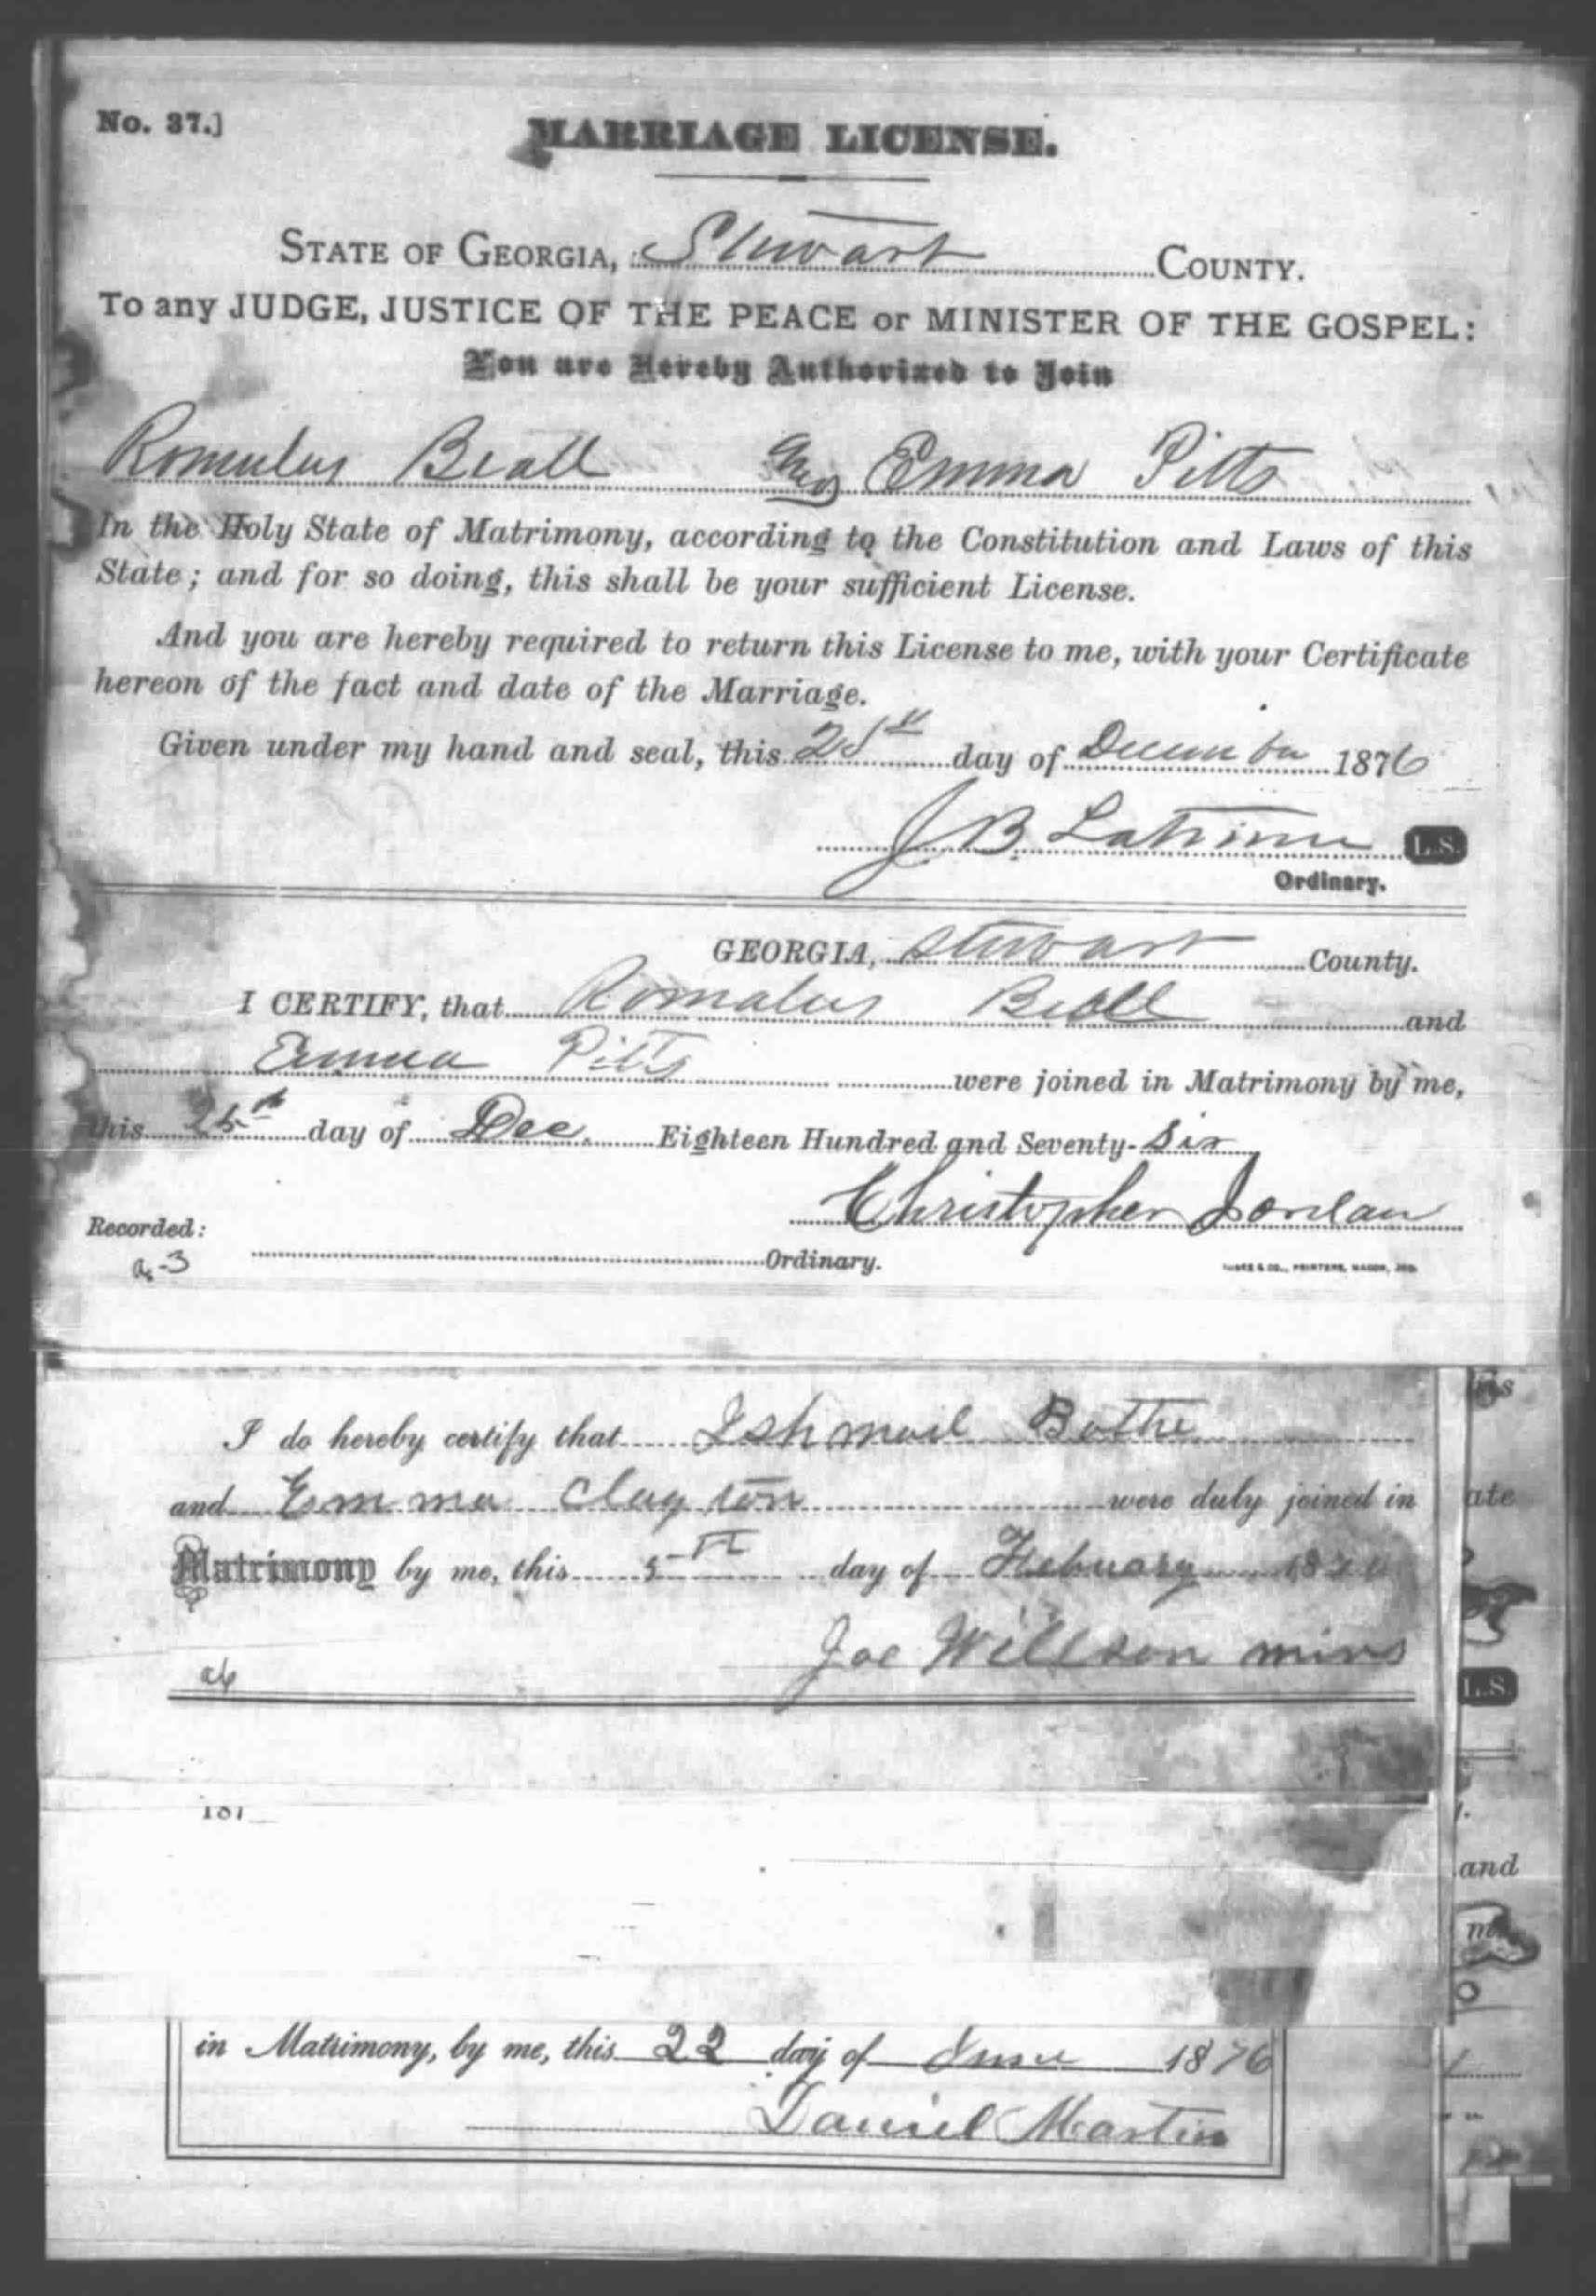 No. 37.]
MARRIAGE LICENSE.
STATE OF GEORGIA, Stewart COUNTY.
To any JUDGE, JUSTICE OF THE PEACE or MINISTER OF THE GOSPEL:
You are Hereby Authorized to Join
Romulus Beall and Emma Pitts
In the Holy State of Matrimony, according to the Constitution and Laws of this
State; and for so doing, this shall be your sufficient License.
And you are hereby required to return this License to me, with your Certificate
hereon of the fact and date of the Marriage.
Given under my hand and seal, this day of December 1876
J B Latimer L.S.
Ordinary.
GEORGIA, Stewart County.
I CERTIFY, that Romulus Beall and
Emma Pitts were joined in Matrimony by me,
this 25th day of Dec. Eighteen Hundred and Seventy-six
Christopher Jordan
Recorded:
Ordinary.
PRINTERS, MACON, GEO.
I do hereby certify that Ishmael Bothe
and Emma Clayton were duly joined in
Matrimony by me, this 5th day of Febuary 1876
Joe Willson mins
187
in Matrimony, by me, this 22 day of June 1876
Daniel Martin
ate
L.S.
and